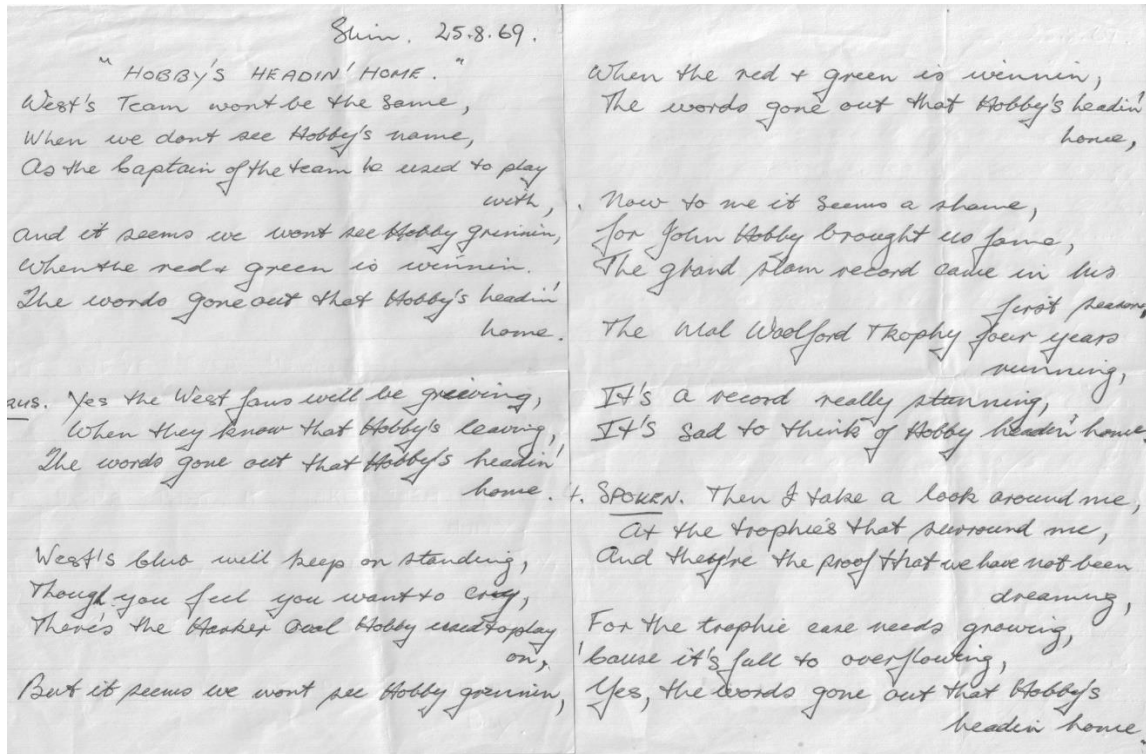 Slim. 25.8.69.
"HOBBY'S HEADIN' HOME."
West's Team wont be the same,
When we dont see Hobby's name,
As the Captain of the team he used to play
with,
And it seems we wont see Hobby grinnin,
When the red & green is winnin.
The words gone out that Hobby's headin'
home.
RUS. Yes the West fans will be grieving,
When they know that Hobby's leaving,
The words gone out that Hobby's headin'
home.
West's Club will keep on standing,
Though you feel you want to cry,
There's the Harker Oval Hobby used to play
on,
But it seems we wont see Hobby grinnin,
When the red & green is winnin,
The words gone out that Hobby's headin'
home,
Now to me it seems a shame,
For John Hobby brought us fame,
The grand slam record came in his
first season,
The Mal Woolford Trophy four years
running,
It's a record really stunning,
It's sad to think of Hobby headin' home.
4. SPOKEN. Then I take a look around me,
At the trophie's that surround me,
And they're the proof that we have not been
dreaming,
For the trophie case needs growing,
'Cause it's full to overflowing,
Yes, the words gone out that Hobby's
headin home.